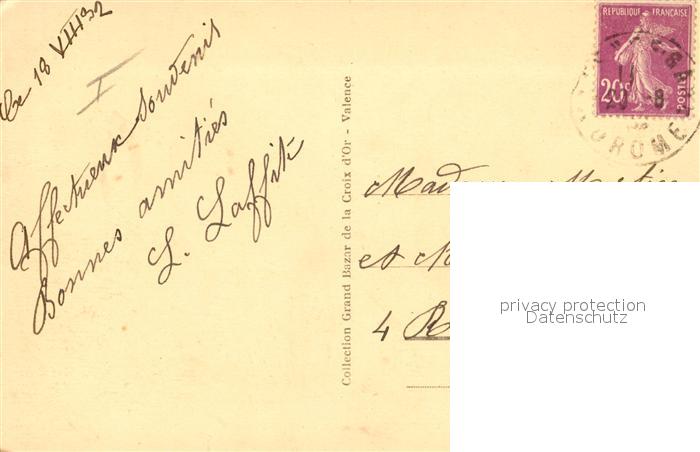 Le 18 VIII 32
Affectueux Souvenir
Bonnes amitiés
L. Laffite
Collection Grand Bazar de la Croix d'Or - Valence
REPUBLIQUE FRANÇAISE
20c
POSTES
-8
DROME
Madame
et
4 R
privacy protection
Datenschutz